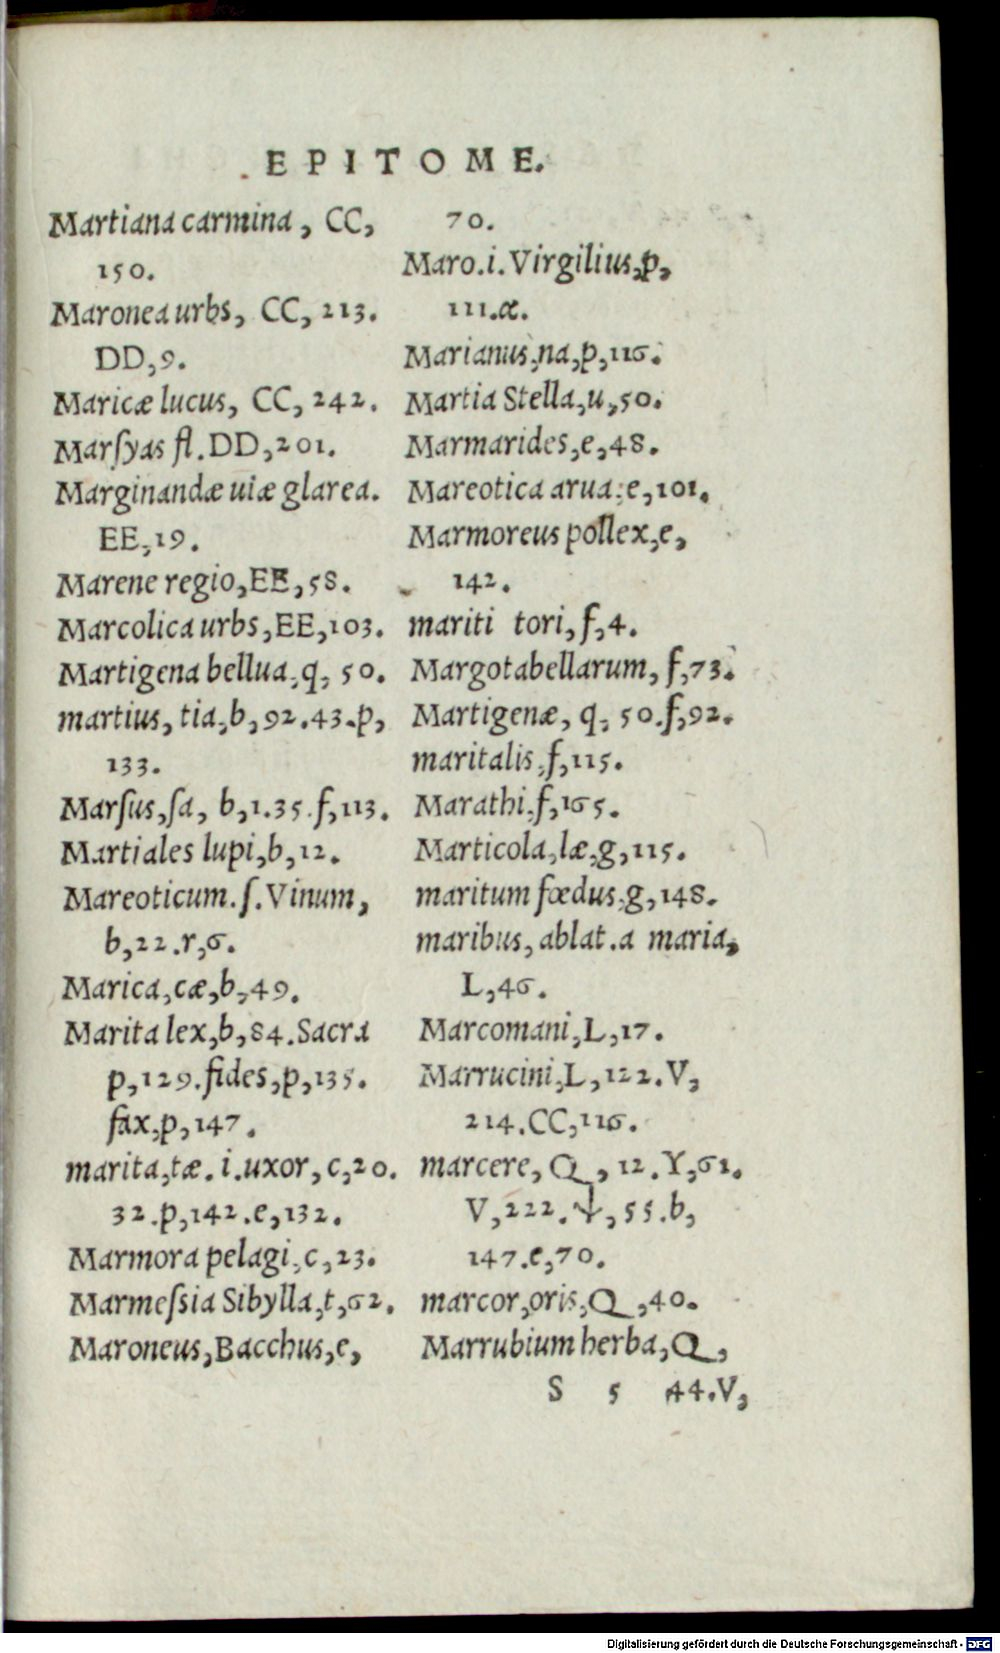 EPITOME.
Martiana carmina, CC,
150.
Maronea urbs, CC, 213.
DD, 9.
Maricæ lucus, CC, 242.
Marſyas fl. DD, 201.
Marginandæ uiæ glarea.
EE, 19.
Marene regio, EE, 58.
Marcolica urbs, EE, 103.
Martigena bellua, q, 50.
martius, tia, b, 92.43.p,
133.
Marſus, ſa, b, 1.35.f, 113.
Martiales lupi, b, 12.
Mareoticum. ſ. Vinum,
b, 22.r, 6.
Marica, cæ, b, 49.
Marita lex, b, 84. Sacra
p, 129. fides, p, 135.
fax, p, 147.
marita, tæ. i. uxor, c, 20.
32.p, 142.e, 132.
Marmora pelagi, c, 23.
Marmeſsia Sibylla, t, 62.
Maroneus, Bacchus, e,
70.
Maro. i. Virgilius, p,
111.æ.
Marianus, na, p, 116.
Martia Stella, u, 50.
Marmarides, e, 48.
Mareotica arua, e, 101.
Marmoreus pollex, e,
142.
mariti tori, f, 4.
Margotabellarum, f, 73.
Martigenæ, q, 50.f, 92.
maritalis, f, 115.
Marathi, f, 165.
Marticola, læ, g, 115.
maritum fœdus, g, 148.
maribus, ablat. a maria,
L, 46.
Marcomani, L, 17.
Marrucini, L, 122.V,
214.CC, 116.
marcere, Q, 12.Y, 61.
V, 222.ψ, 55.b,
147.e, 70.
marcor, oris, Q, 40.
Marrubium herba, Q,
S 5 44.V,
Digitalisierung gefördert durch die Deutsche Forschungsgemeinschaft - DFG